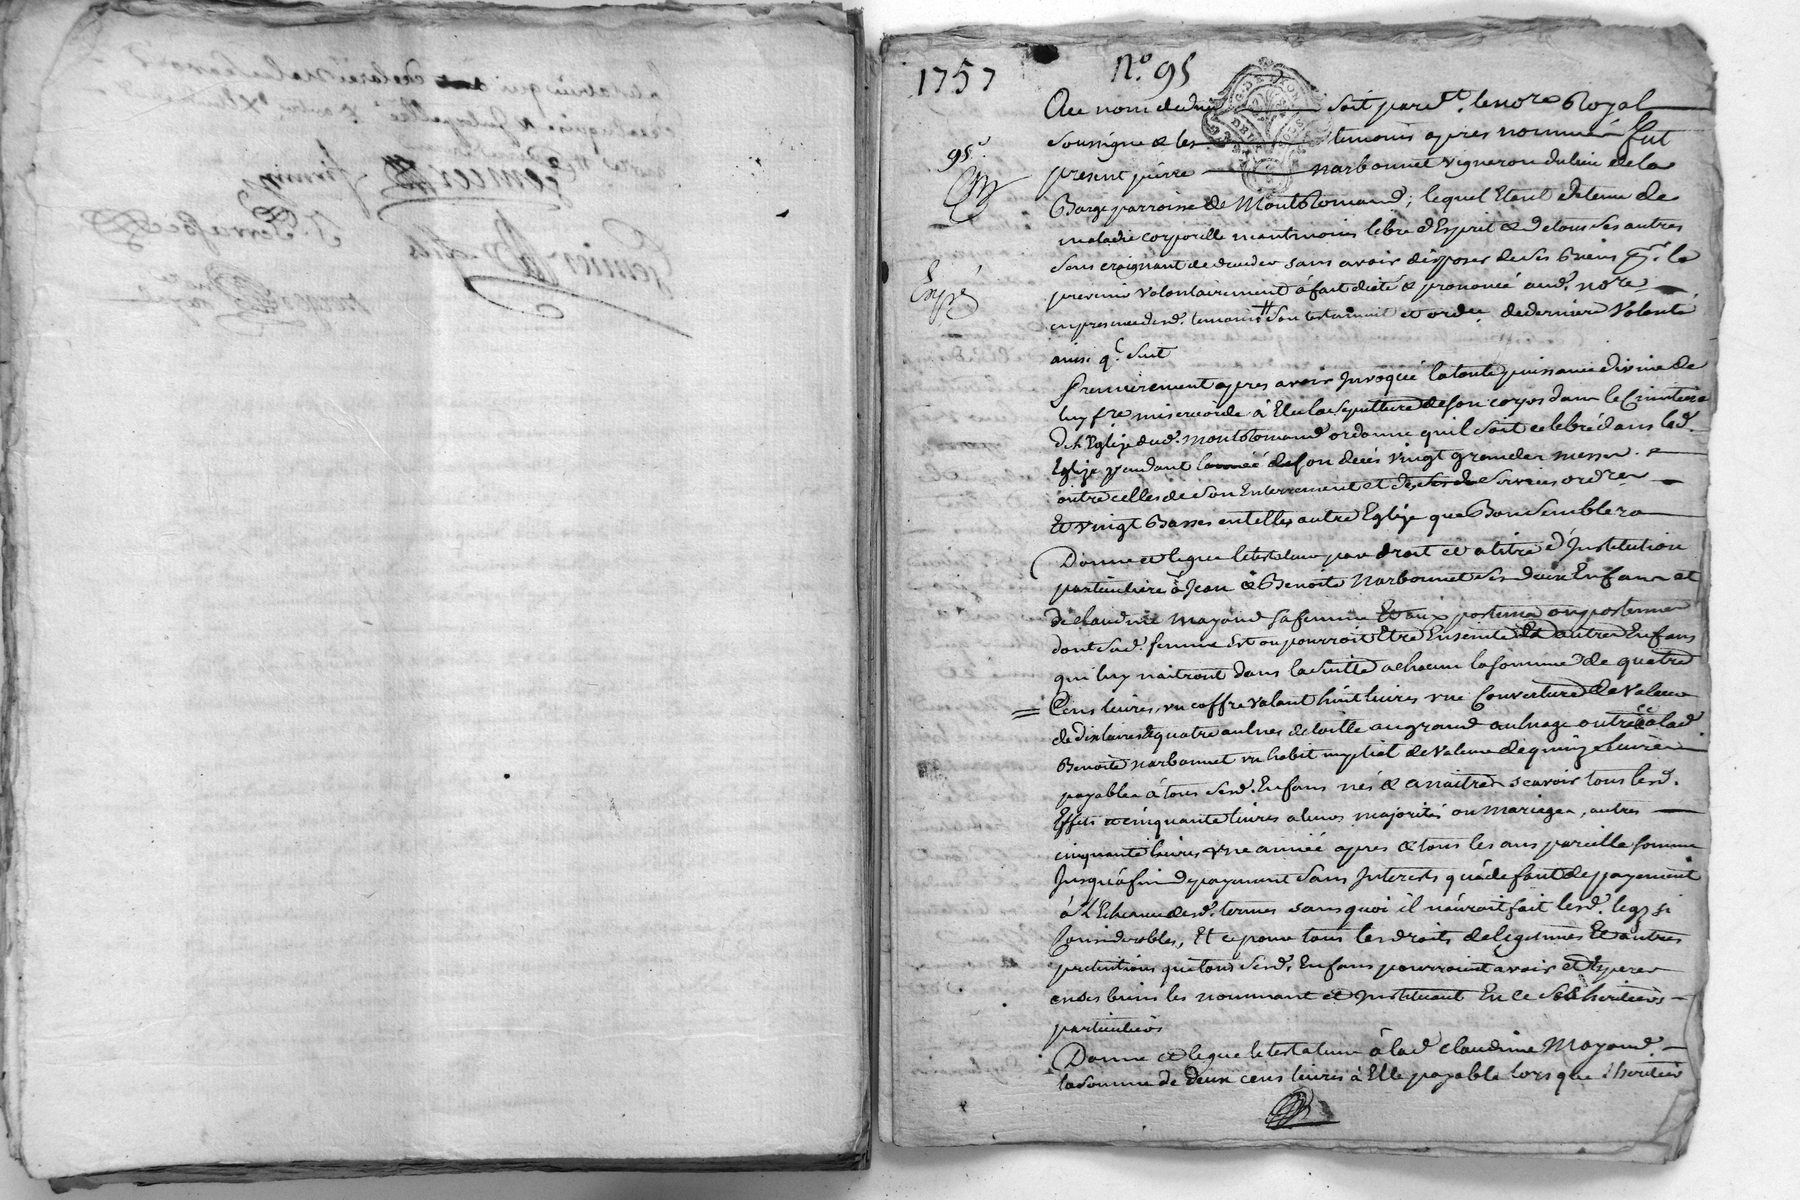 déclaré ne le savoir
Gonier
firmin
Gonier fils
1757
N.º 95
95.e
Expé
Au nom de dieu soit par dt. le nore Royal
soussigné & les temoins apres nommés fut
present pierre narbonnet vigneron du lieu de la
Barge parroisse de Montbrmand, lequel Etant detenu de
maladie corporelle neantmoins libre d'Esprit & de tous ses autres
sens craignant de deceder sans avoir disposer de ses biens q.r le
prevenir volontairement a fait dicté & prononcé aud. nore
en presence desd. temoins son testament et ordre de derniere volonté
ainsi q.e suit
Premierement apres avoir Invoqué la toute puissance divine de
luy fre misericorde à Elu la sepulture de son corps dans le Cimetiere
de l'Eglise dud. Montbrmand ordonne quil soit celebré dans lad.
Eglise pendant l'année de son deces vingt grandes messes
outre celles de son Enterrement et de ses services ordres
Et vingt Basses en telles autre Eglise que Bon semblera
Donne et legue le testateur par droit et a titre d'Institution
particuliere à Jean & Benoite Narbonnet ses deux Enfans et
de claudine mayoud sa femme Et aux postume ou postumes
dont sad. femme est ou pourroit Etre Enseinte Et autres Enfans
qui luy naitront dans la suitte a chacun la somme de quatre
Cens livres, un coffre valant huit livres une Couverture de valeur
de dix livres & quatre aulnes de toille au grand aulnage outre ce à lad.
Benoite narbonnet un habit nuptial de valeur de quinze livres
payables à tous sesd. Enfans nés & a naitres scavoir tous lesd.
Effets & cinquante livres a leurs majorités ou mariages, autres
cinquante livres une année apres & tous les ans pareille somme
Jusqu'à fin de payement sans Interests qu'à defaut de payement
à l'Echeance desd. termes sans quoi il n'auroit fait lesd. legz si
Considerables, Et ce pour tous les droits de legitimes Et autres
pretentions que tous sesd. Enfans pourroient avoir et Esperer
en ses biens les nommant et Instituant En ce ses heritiers
particuliers
Donne et legue le testateur à lad. claudine Mayoud
la somme de deux cens livres à Elle payable lors que l'heritier